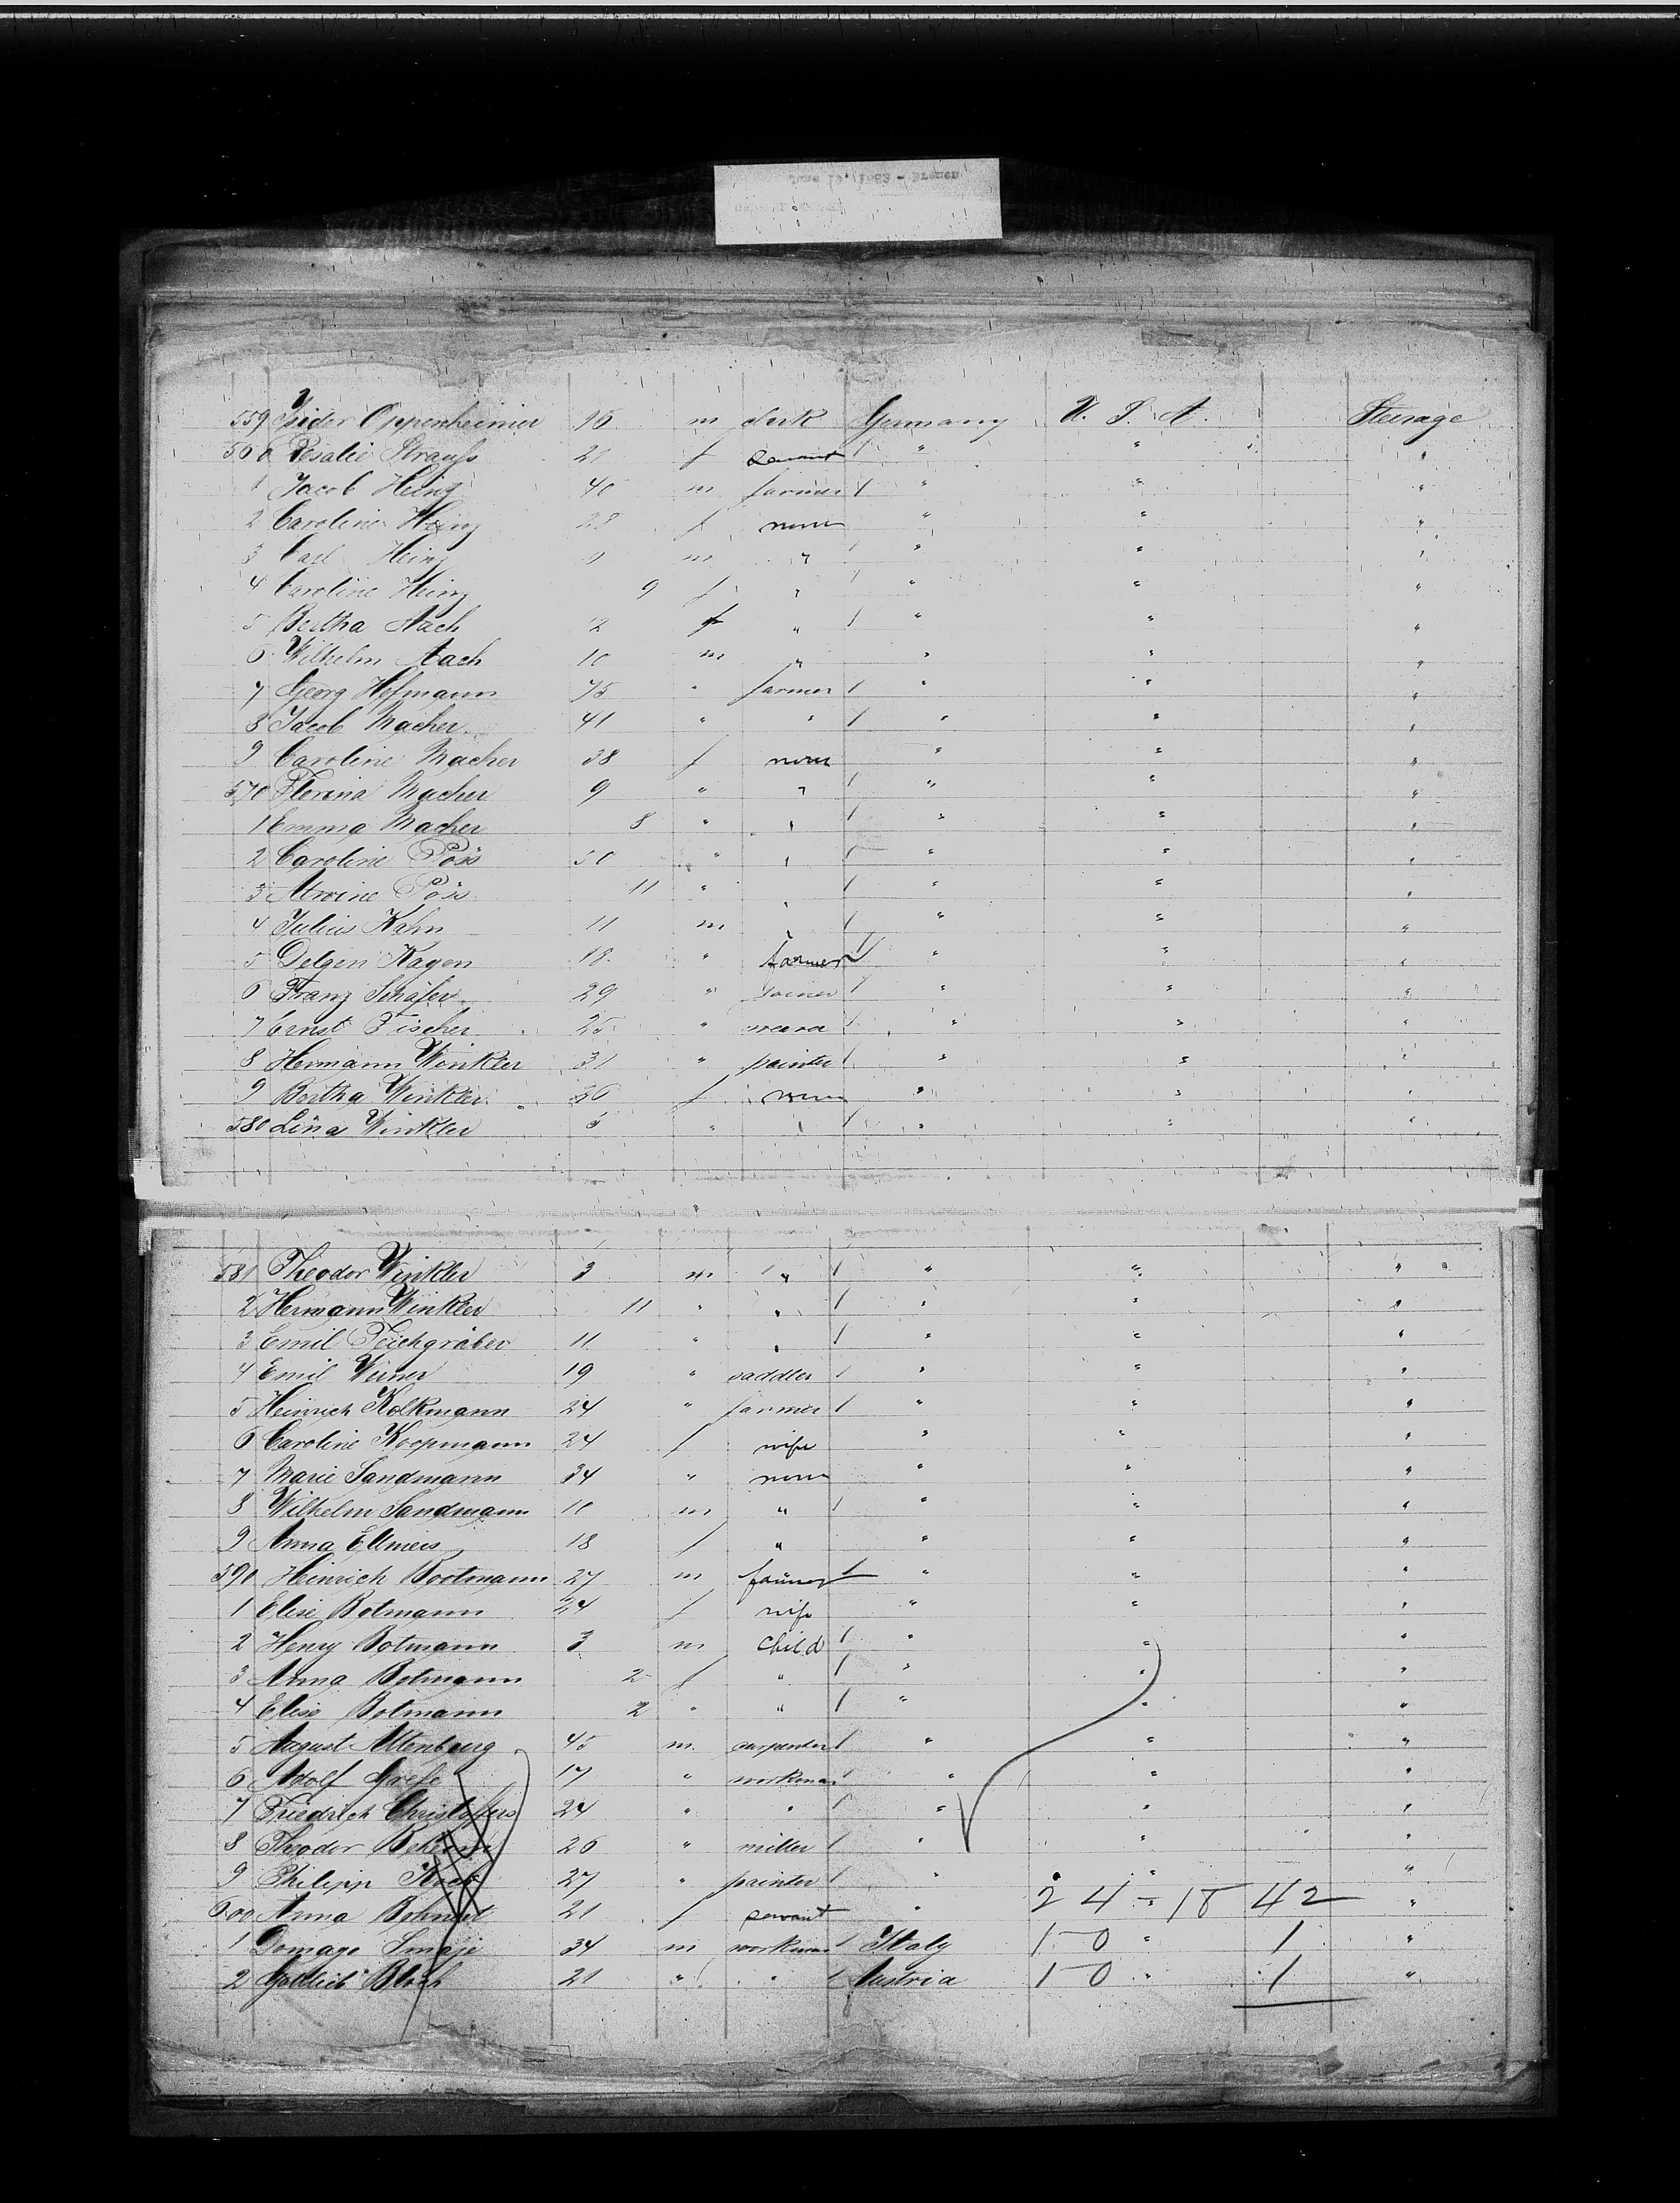 June 16, 1883 - Bremen
559 Isidor Oppenheimer 16 m clerk Germany U. S. A. Steerage
560 Rosalie Strauss 21 f servant " " "
1 Jacob Heinz 40 m farmer " " "
2 Caroline Heinz 28 f none " " "
3 Carl Heinz m " " " "
4 Caroline Heinz 9 f " " " "
5 Bertha Aach f " " " "
6 Wilhelm Aach 10 m " " " "
7 Georg Hofmann 75 " farmer " " "
8 Jacob Macher 41 " " " " "
9 Caroline Macher 38 f none " " "
570 Florina Macher 9 " " " " "
1 Emma Macher 8 " " " " "
2 Caroline Pöss 50 " " " " "
3 Alwine Pöss 11 " " " " "
4 Julius Kahn 11 m " " "
5 Delgen Kagen 18 " farmer " " "
6 Franz Schäfer 29 " joiner " " "
7 Ernst Fischer 25 " " " "
8 Hermann Winkler 31 " painter " " "
9 Bertha Winkler 26 f none " " "
580 Lina Winkler 5 " " " " "
581 Theodor Winkler 3 m " " " "
2 Hermann Winkler 11 " " " " "
3 Emil Teichgräber 11 " " " " "
4 Emil Werner 19 " saddler " " "
5 Heinrich Kolkmann 24 " farmer " " "
6 Caroline Koopmann 24 f wife " " "
7 Marie Sandmann 34 " none " " "
8 Wilhelm Sandmann 10 m " " " "
9 Anna Ellmers 18 f " " " "
590 Heinrich Bootmann 27 m farmer " " "
1 Elise Botmann 24 f wife " " "
2 Henry Botmann 3 m child " " "
3 Anna Botmann 2 f " " " "
4 Elise Botmann 2 " " " " "
5 August Altenburg 45 m. carpenter " " "
6 Adolf Grefe 17 " workman " " "
7 Friedrich Christoffers 24 " " " " "
8 Theodor 26 " miller " " "
9 Philipp 27 " painter " " "
600 Anna 21 f servant " 24 - 18 42 "
1 Domago 34 m workman Italy 1-0 " 1 "
2 Gottlieb Bloch 21 " " Austria 1-0 " 1 "